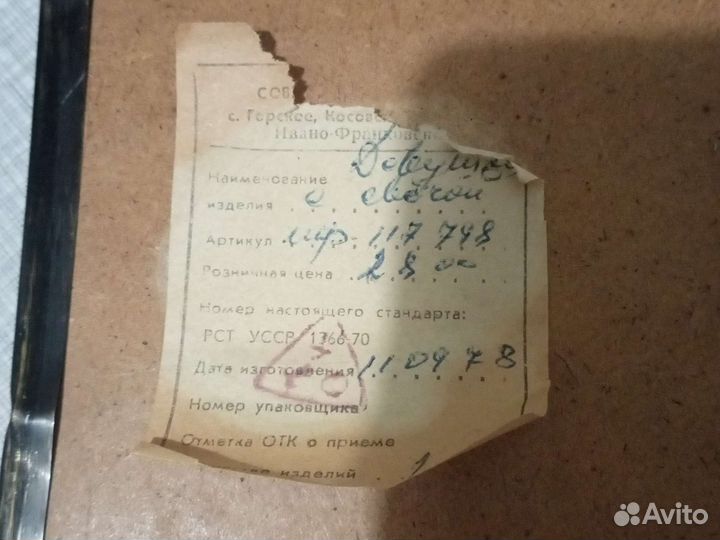 СОВ
с. Горское, Косовс
Ивано-Франковск
Наименование Девушка
изделия с свечой
Артикул шр-117 798
Розничная цена 28 00
Номер настоящего стандарта:
РСТ УССР 1366-70
Дата изготовления 11 09 78
Номер упаковщика
Отметка ОТК о приеме
изделий 1
Avito